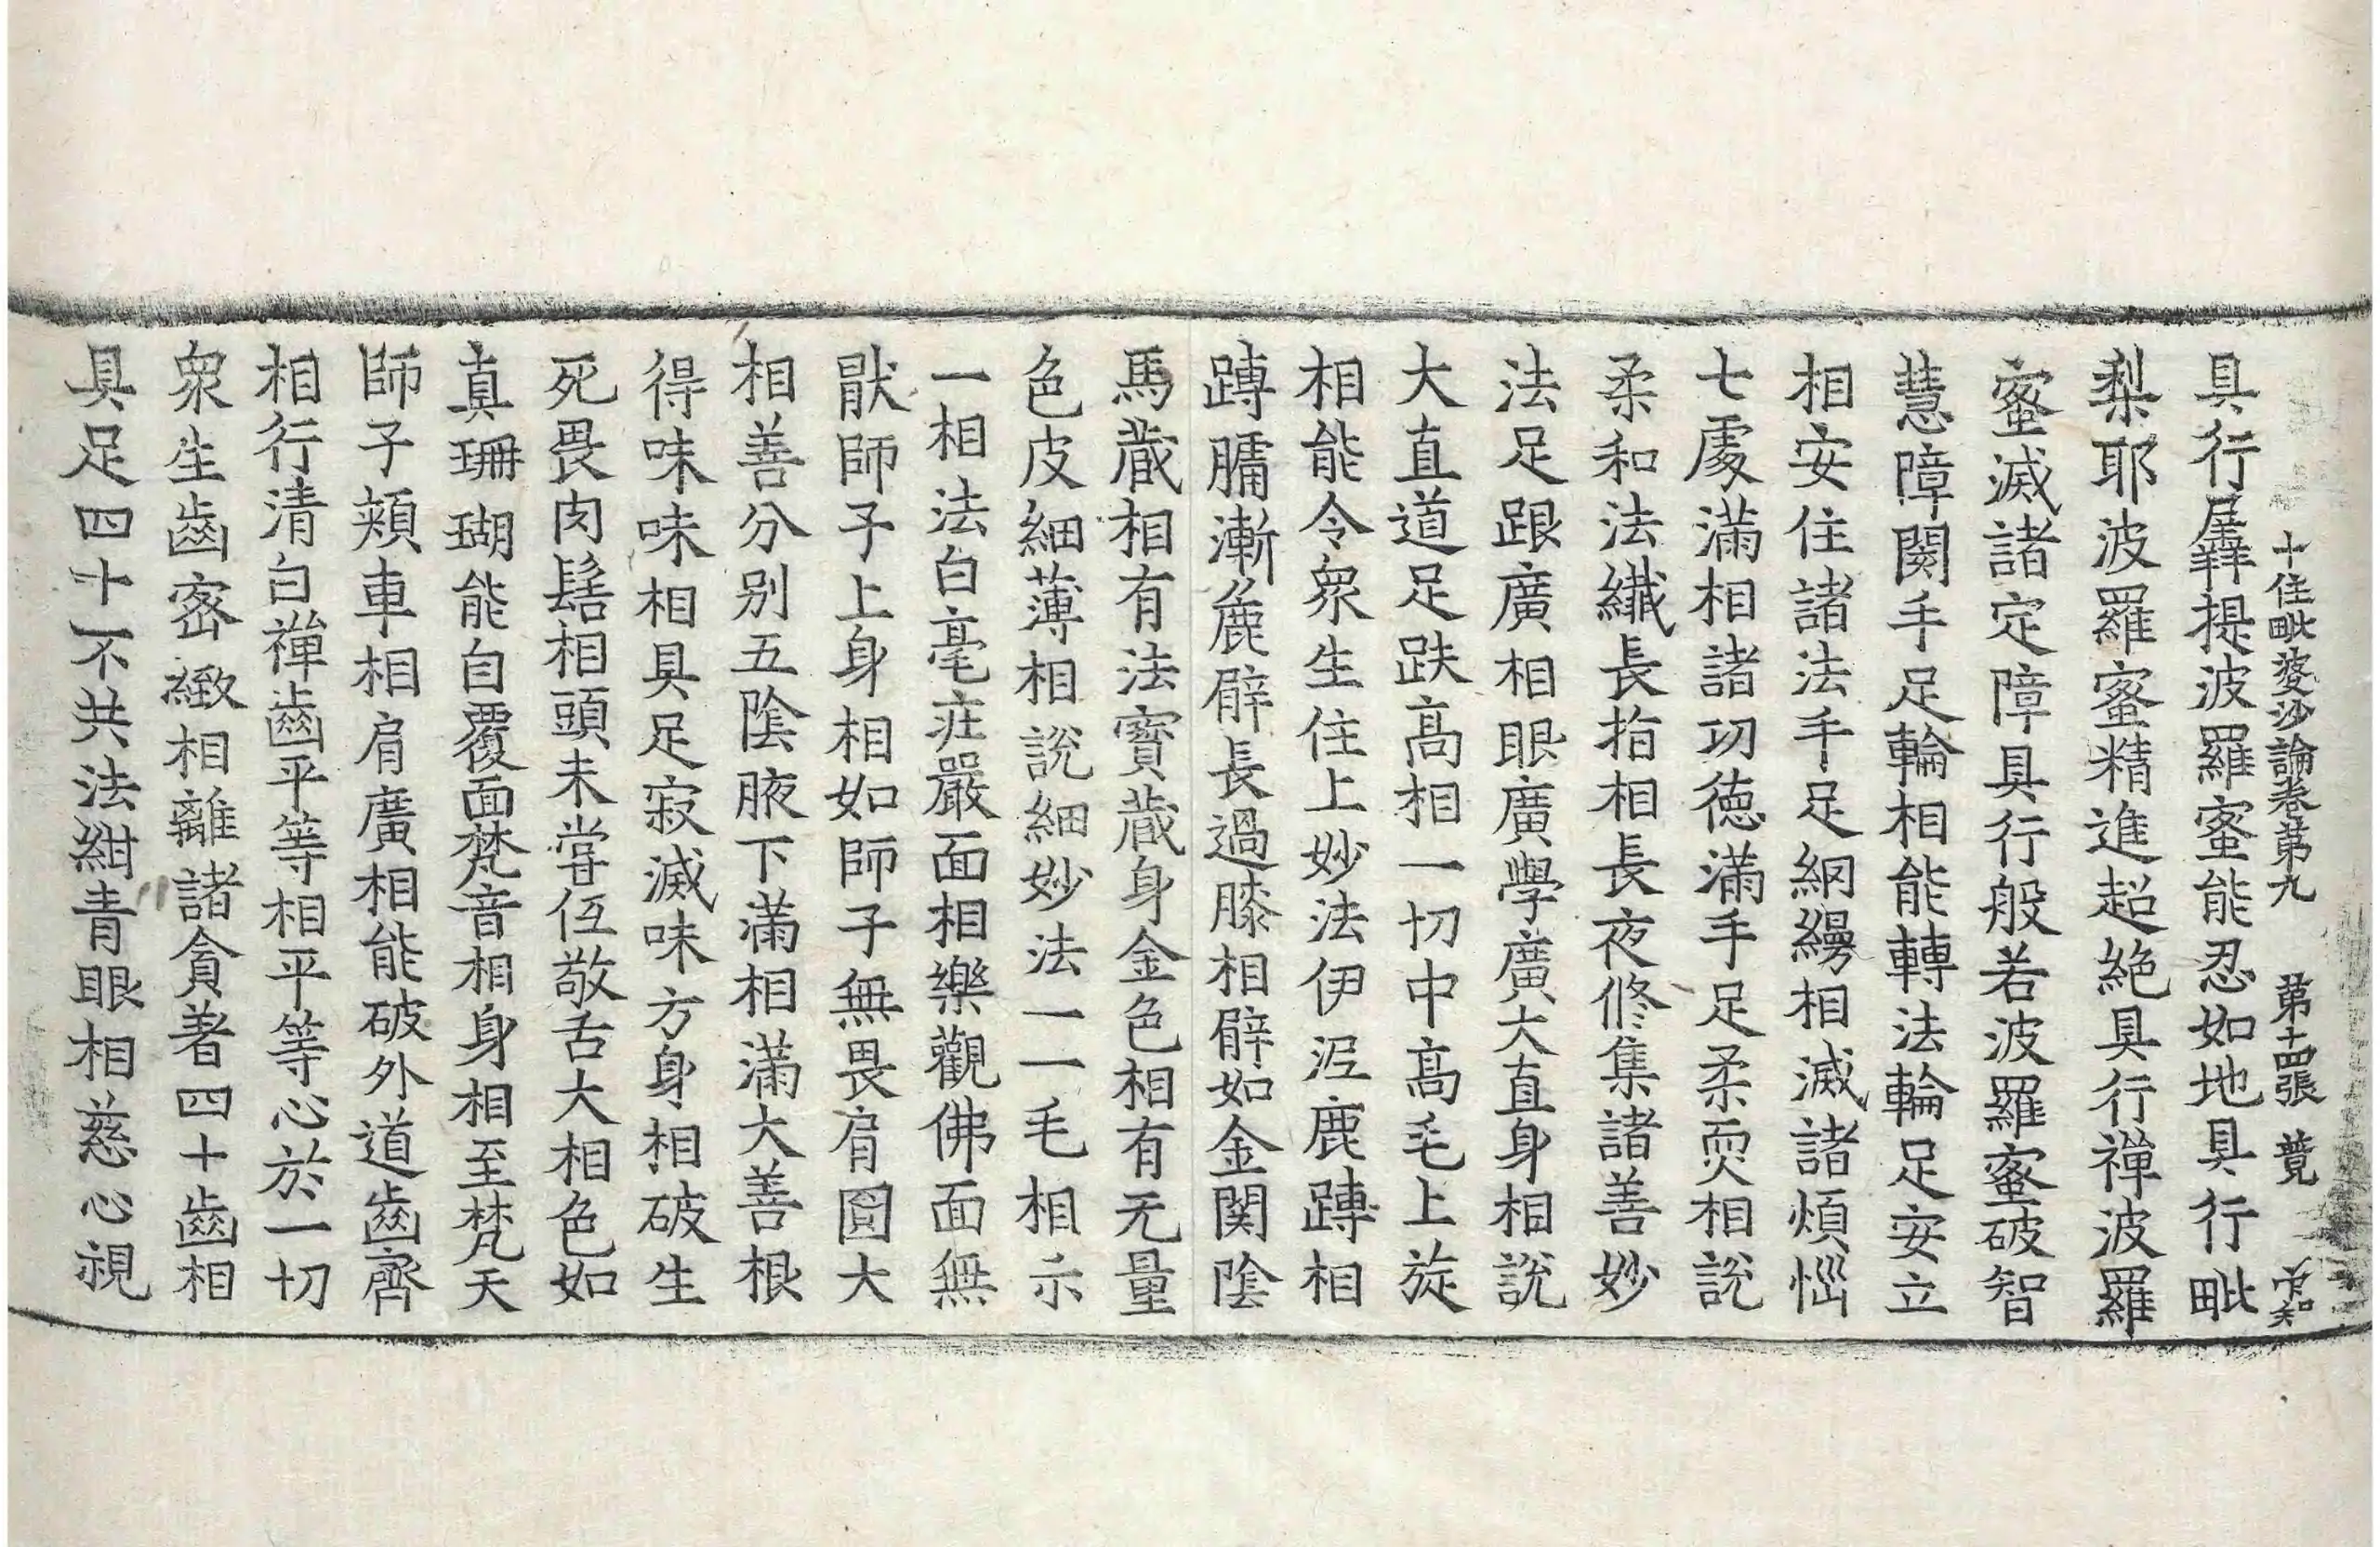 十住毗婆沙論卷第九　第十四張　竟
具行羼提波羅蜜能忍如地具行毗
梨耶波羅蜜精進超絶具行禪波羅
蜜滅諸定障具行般若波羅蜜破智
慧障関手足輪相能轉法輪足安立
相安住諸法手足網縵相滅諸煩惱
七處滿相諸功德滿手足柔耎相說
柔和法纎長指相長夜修集諸善妙
法足跟廣相眼廣學廣大直身相說
大直道足趺髙相一切中髙毛上旋
相能令衆生住上妙法伊泥鹿蹲相
蹲𦟛漸麁臂長過膝相臂如金関陰
馬藏相有法寶藏身金色相有无量
色皮細薄相說細妙法一一毛相示
一相法白毫莊嚴面相樂觀佛面無
猒師子上身相如師子無畏肩圓大
相善分別五陰腋下滿相滿大善根
得味味相具足寂滅味方身相破生
死畏肉髻相頭未嘗低敬舌大相色如
真珊瑚能自覆面梵音相身相至梵天
師子頰車相肩廣相能破外道齒齊
相行清白禪齒平等相平等心於一切
衆生齒密緻相離諸貪著四十齒相
具足四十不共法紺青眼相慈心視